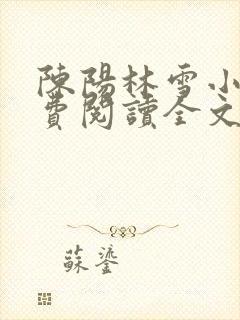 陳陽林雪小
費閱讀全文
蘇鎏